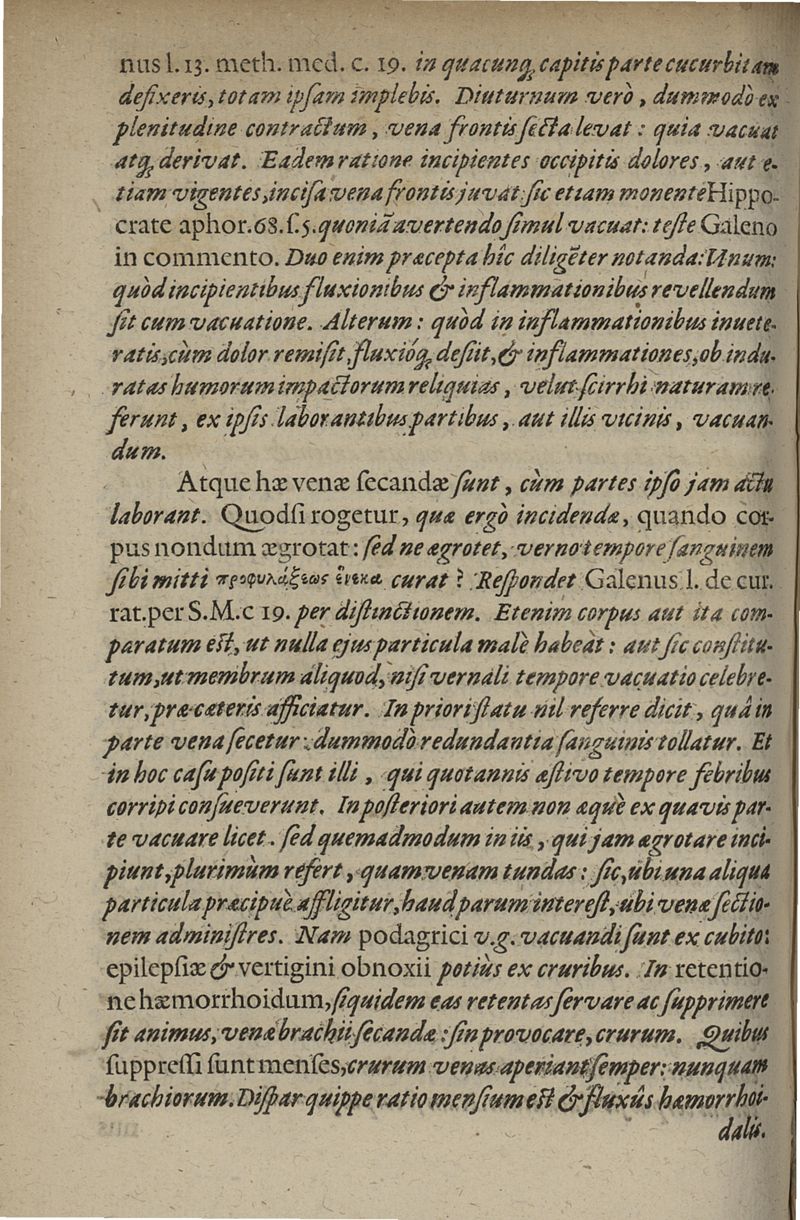 nus l. 13. meth. med. c. 19. in quacunq; capitis parte cucurbitam
defixeris, totam ipsam implebis. Diuturnum verò, dummodo ex
plenitudine contractum, vena frontis secta levat: quia vacuat
atq; derivat. Eadem ratione incipientes occipitis dolores, aut e-
tiam vigentes, incisa vena frontis juvat: sic etiam monente Hippo-
crate aphor. 68. s. 5. quoniã avertendo simul vacuat: teste Galeno
in commento. Duo enim præcepta hîc diligẽter notanda: Unum:
quòd incipientibus fluxionibus & inflammationibus revellendum
sit cum vacuatione. Alterum: quòd in inflammationibus inuete-
ratis, cùm dolor remisit, fluxióq; desiit, & inflammationes, ob indu-
ratas humorum impactorum reliquias, velut scirrhi naturam re-
ferunt, ex ipsis laborantibus partibus, aut illis vicinis, vacuan-
dum.
Atque hæ venæ secandæ sunt, cùm partes ipso jam actu
laborant. Quodsi rogetur, quæ ergò incidendæ, quando cor-
pus nondum ægrotat: sed ne ægrotet, verno tempore sanguinem
sibi mitti προφυλάξεως ἕνεκα curat? Respondet Galenus l. de cur.
rat. per S. M. c 19. per distinctionem. Etenim corpus aut ita com-
paratum est, ut nulla ejus particula malè habeat: aut sic constitu-
tum, ut membrum aliquod, nisi vernali tempore vacuatio celebre-
tur, præ cæteris afficiatur. In priori statu nil referre dicit, quâ in
parte vena secetur: dummodò redundantia sanguinis tollatur. Et
in hoc casu positi sunt illi, qui quotannis æstivo tempore febribus
corripi consueverunt. In posteriori autem non æquè ex quavis par-
te vacuare licet. sed quemadmodum in iis, qui jam ægrotare inci-
piunt, plurimùm refert, quam venam tundas: sic, ubi una aliqua
particula præcipuè affligitur, haud parum interest, ubi venæ sectio-
nem administres. Nam podagrici v. g. vacuandi sunt ex cubito:
epilepsiæ & vertigini obnoxii potiùs ex cruribus. In retentio-
ne hæmorrhoidum, siquidem eas retentas servare ac supprimere
sit animus, venæ brachii secandæ: sin provocare, crurum. Quibus
suppressi sunt menses, crurum venas aperiant semper: nunquam
brachiorum. Dispar quippe ratio mensium est & fluxûs hæmorrhoi-
dalis.